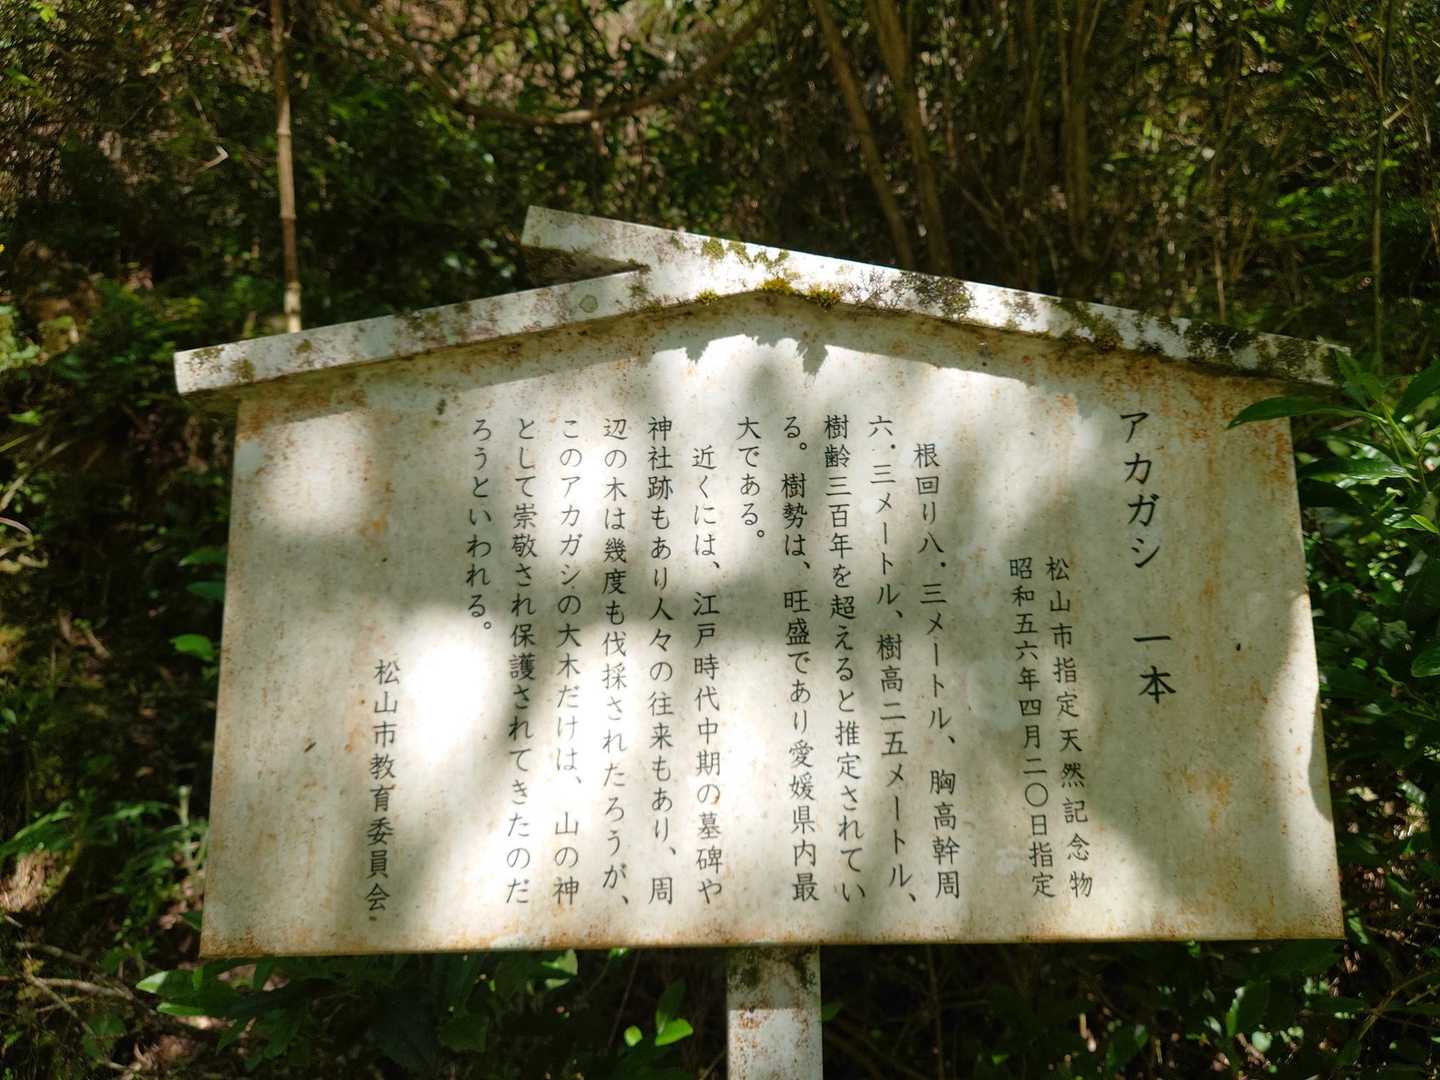 アカガシ 一本
松山市指定天然記念物
昭和五六年四月二〇日指定
根回り八．三メートル、胸高幹周
六．三メートル、樹高二五メートル、
樹齢三百年を超えると推定されてい
る。樹勢は、旺盛であり愛媛県内最
大である。
近くには、江戸時代中期の墓碑や
神社跡もあり人々の往来もあり、周
辺の木は幾度も伐採されたろうが、
このアカガシの大木だけは、山の神
として崇敬され保護されてきたのだ
ろうといわれる。
松山市教育委員会